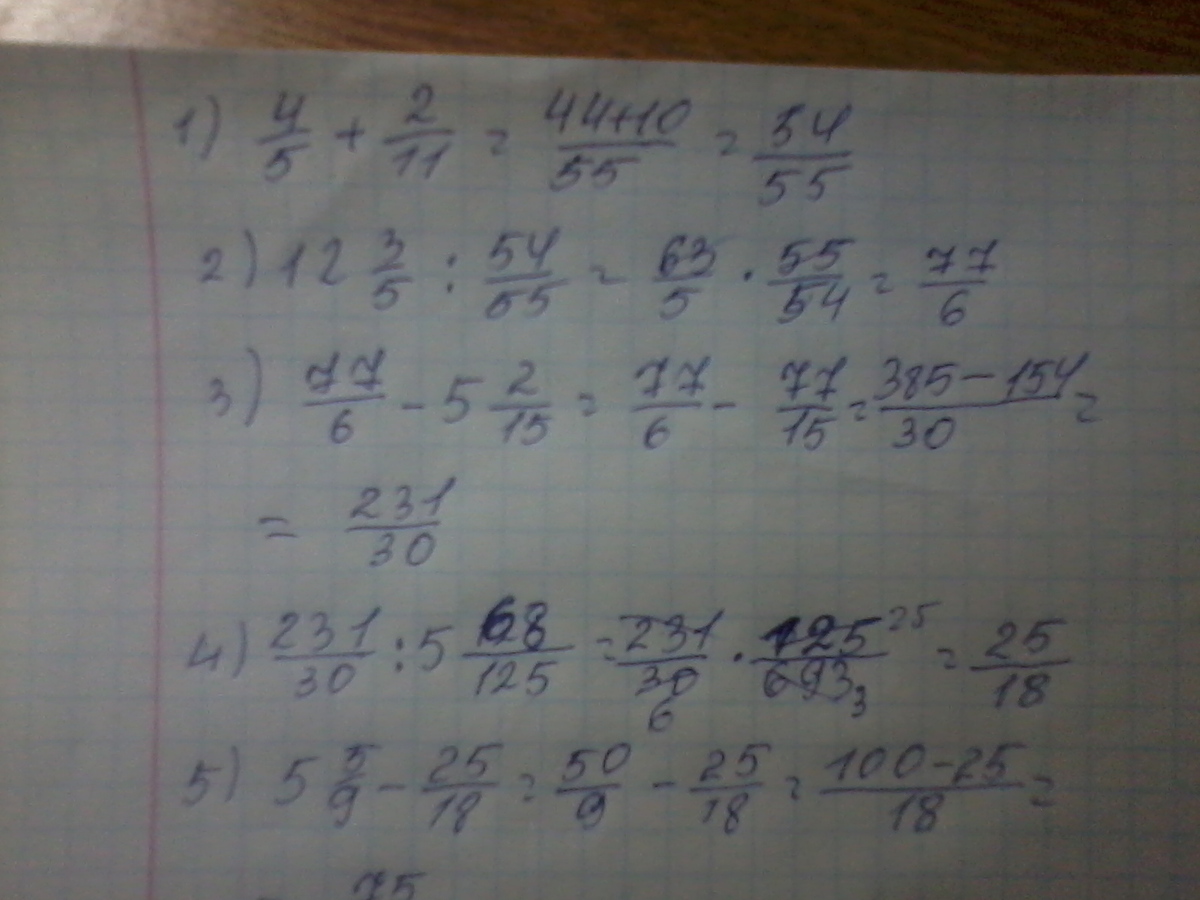 1) 4/5 + 2/11 = 44+10/55 = 54/55
2) 12 3/5 : 54/55 = 63/5 · 55/54 = 77/6
3) 77/6 - 5 2/15 = 77/6 - 77/15 = 385-154/30 =
= 231/30
4) 231/30 : 5 68/125 = 231/30 6 · 125 25/693 3 = 25/18
5) 5 5/9 - 25/18 = 50/9 - 25/18 = 100-25/18 =
75